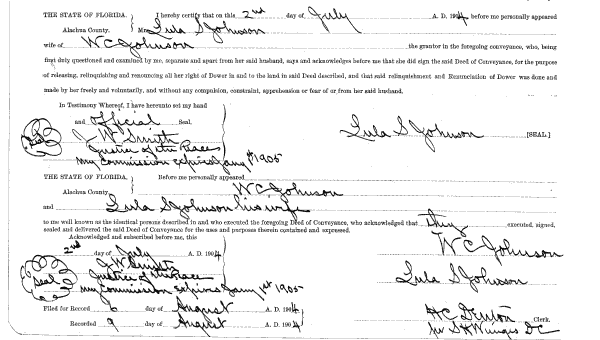 THE STATE OF FLORIDA. I hereby certify that on this 2nd day of July A. D. 1904, before me personally appeared
Alachua County. Mrs Lula S Johnson
wife of W C Johnson the grantor in the foregoing conveyance, who, being
first duly questioned and examined by me, separate and apart from her said husband, says and acknowledges before me that she did sign the said Deed of Conveyance, for the purpose
of releasing, relinquishing and renouncing all her right of Dower in and to the land in said Deed described, and that said relinquishment and Renunciation of Dower was done and
made by her freely and voluntarily, and without any compulsion, constraint, apprehension or fear of or from her said husband.
In Testimony Whereof, I have hereunto set my hand
and official Seal.
Seal J. W Smith Lula S Johnson [SEAL]
Justice of the Peace
my Commission expires Jany 1st 1905
THE STATE OF FLORIDA. Before me personally appeared
Alachua County. W C Johnson
and Lula S Johnson his wife
to me well known as the identical persons described in and who executed the foregoing Deed of Conveyance, who acknowledged that they executed, signed,
sealed and delivered the said Deed of Conveyance for the uses and purposes therein contained and expressed.
Acknowledged and subscribed before me, this
2nd day of July A. D. 1904 W C Johnson
J. W Smith
Seal Justice of the Peace Lula S Johnson
my Commission expires Jany 1st 1905
Filed for Record 6 day of August A. D. 1904 H C Denton Clerk.
Recorded 9 day of August A. D. 1904 per S H Wienges D C